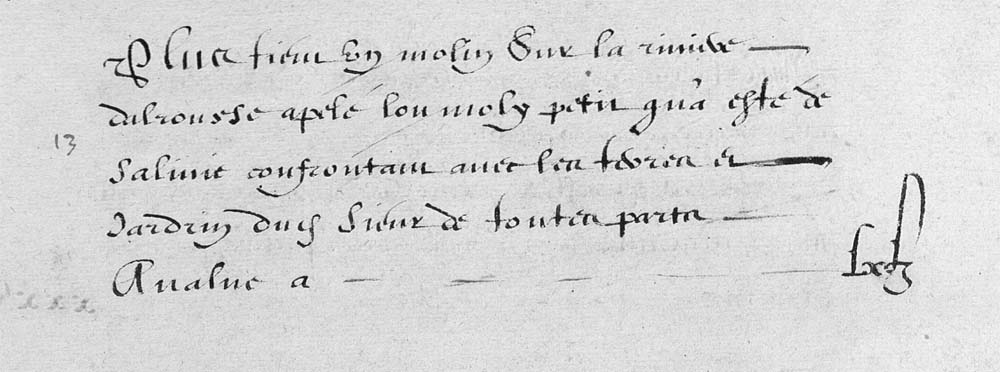 Plus tient vn molin Sur la riuiere
dalrousse apele lou moly petit qu'a este de
Salinie confrontant auec les terres et
Jardrin duch Sieur de toutes parts
13
Aualue a